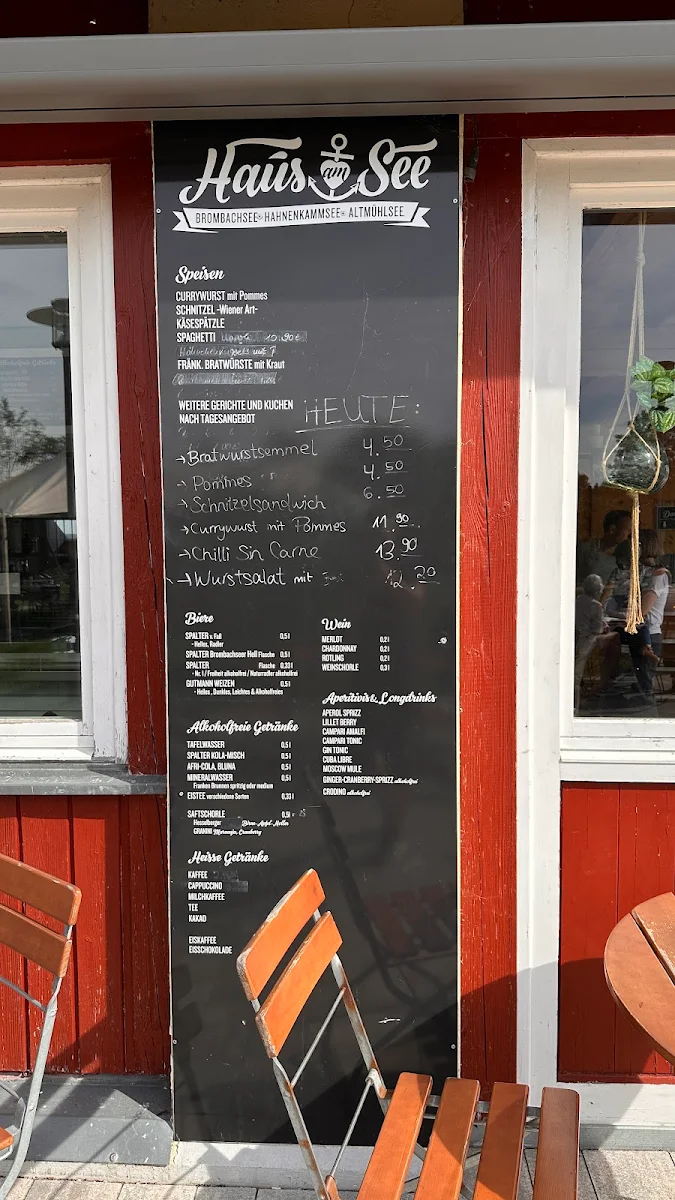 Haus am See
BROMBACHSEE HAHNENKAMMSEE ALTMÜHLSEE
Speisen
CURRYWURST mit Pommes
SCHNITZEL -Wiener Art-
KÄSESPÄTZLE
SPAGHETTI 10.90€
FRÄNK. BRATWÜRSTE mit Kraut
WEITERE GERICHTE UND KUCHEN
NACH TAGESANGEBOT
HEUTE:
→Bratwurstsemmel 4.50
→Pommes 4.50
→Schnitzelsandwich 6.50
→Currywurst mit Pommes 11.90
→Chilli Sin Carne 13.90
→Wurstsalat mit 12.20
Biere
SPALTER v. Faß 0,5 l
- Helles, Radler
SPALTER Brombachseer Hell Flasche 0,5 l
SPALTER Flasche 0,33 l
- Nr. 1 / Freiheit alkoholfrei / Naturradler alkoholfrei
GUTMANN WEIZEN 0,5 l
- Helles, Dunkles, Leichtes & Alkoholfreies
Wein
MERLOT 0,2 l
CHARDONNAY 0,2 l
ROTLING 0,2 l
WEINSCHORLE 0,3 l
Alkoholfreie Getränke
TAFELWASSER 0,5 l
SPALTER KOLA-MISCH 0,5 l
AFRI-COLA, BLUNA 0,5 l
MINERALWASSER 0,5 l
Franken Brunnen spritzig oder medium
EISTEE verschiedene Sorten 0,33 l
SAFTSCHORLE 0,5 l
Hesselberger Birne-Apfel-Holler
GRANINI Maracuja, Cranberry
Aperitivis & Longdrinks
APEROL SPRIZZ
LILLET BERRY
CAMPARI AMALFI
CAMPARI TONIC
GIN TONIC
CUBA LIBRE
MOSCOW MULE
GINGER-CRANBERRY-SPRIZZ alkoholfrei
CRODINO alkoholfrei
Heisse Getränke
KAFFEE
CAPPUCCINO
MILCHKAFFEE
TEE
KAKAO
EISKAFFEE
EISSCHOKOLADE